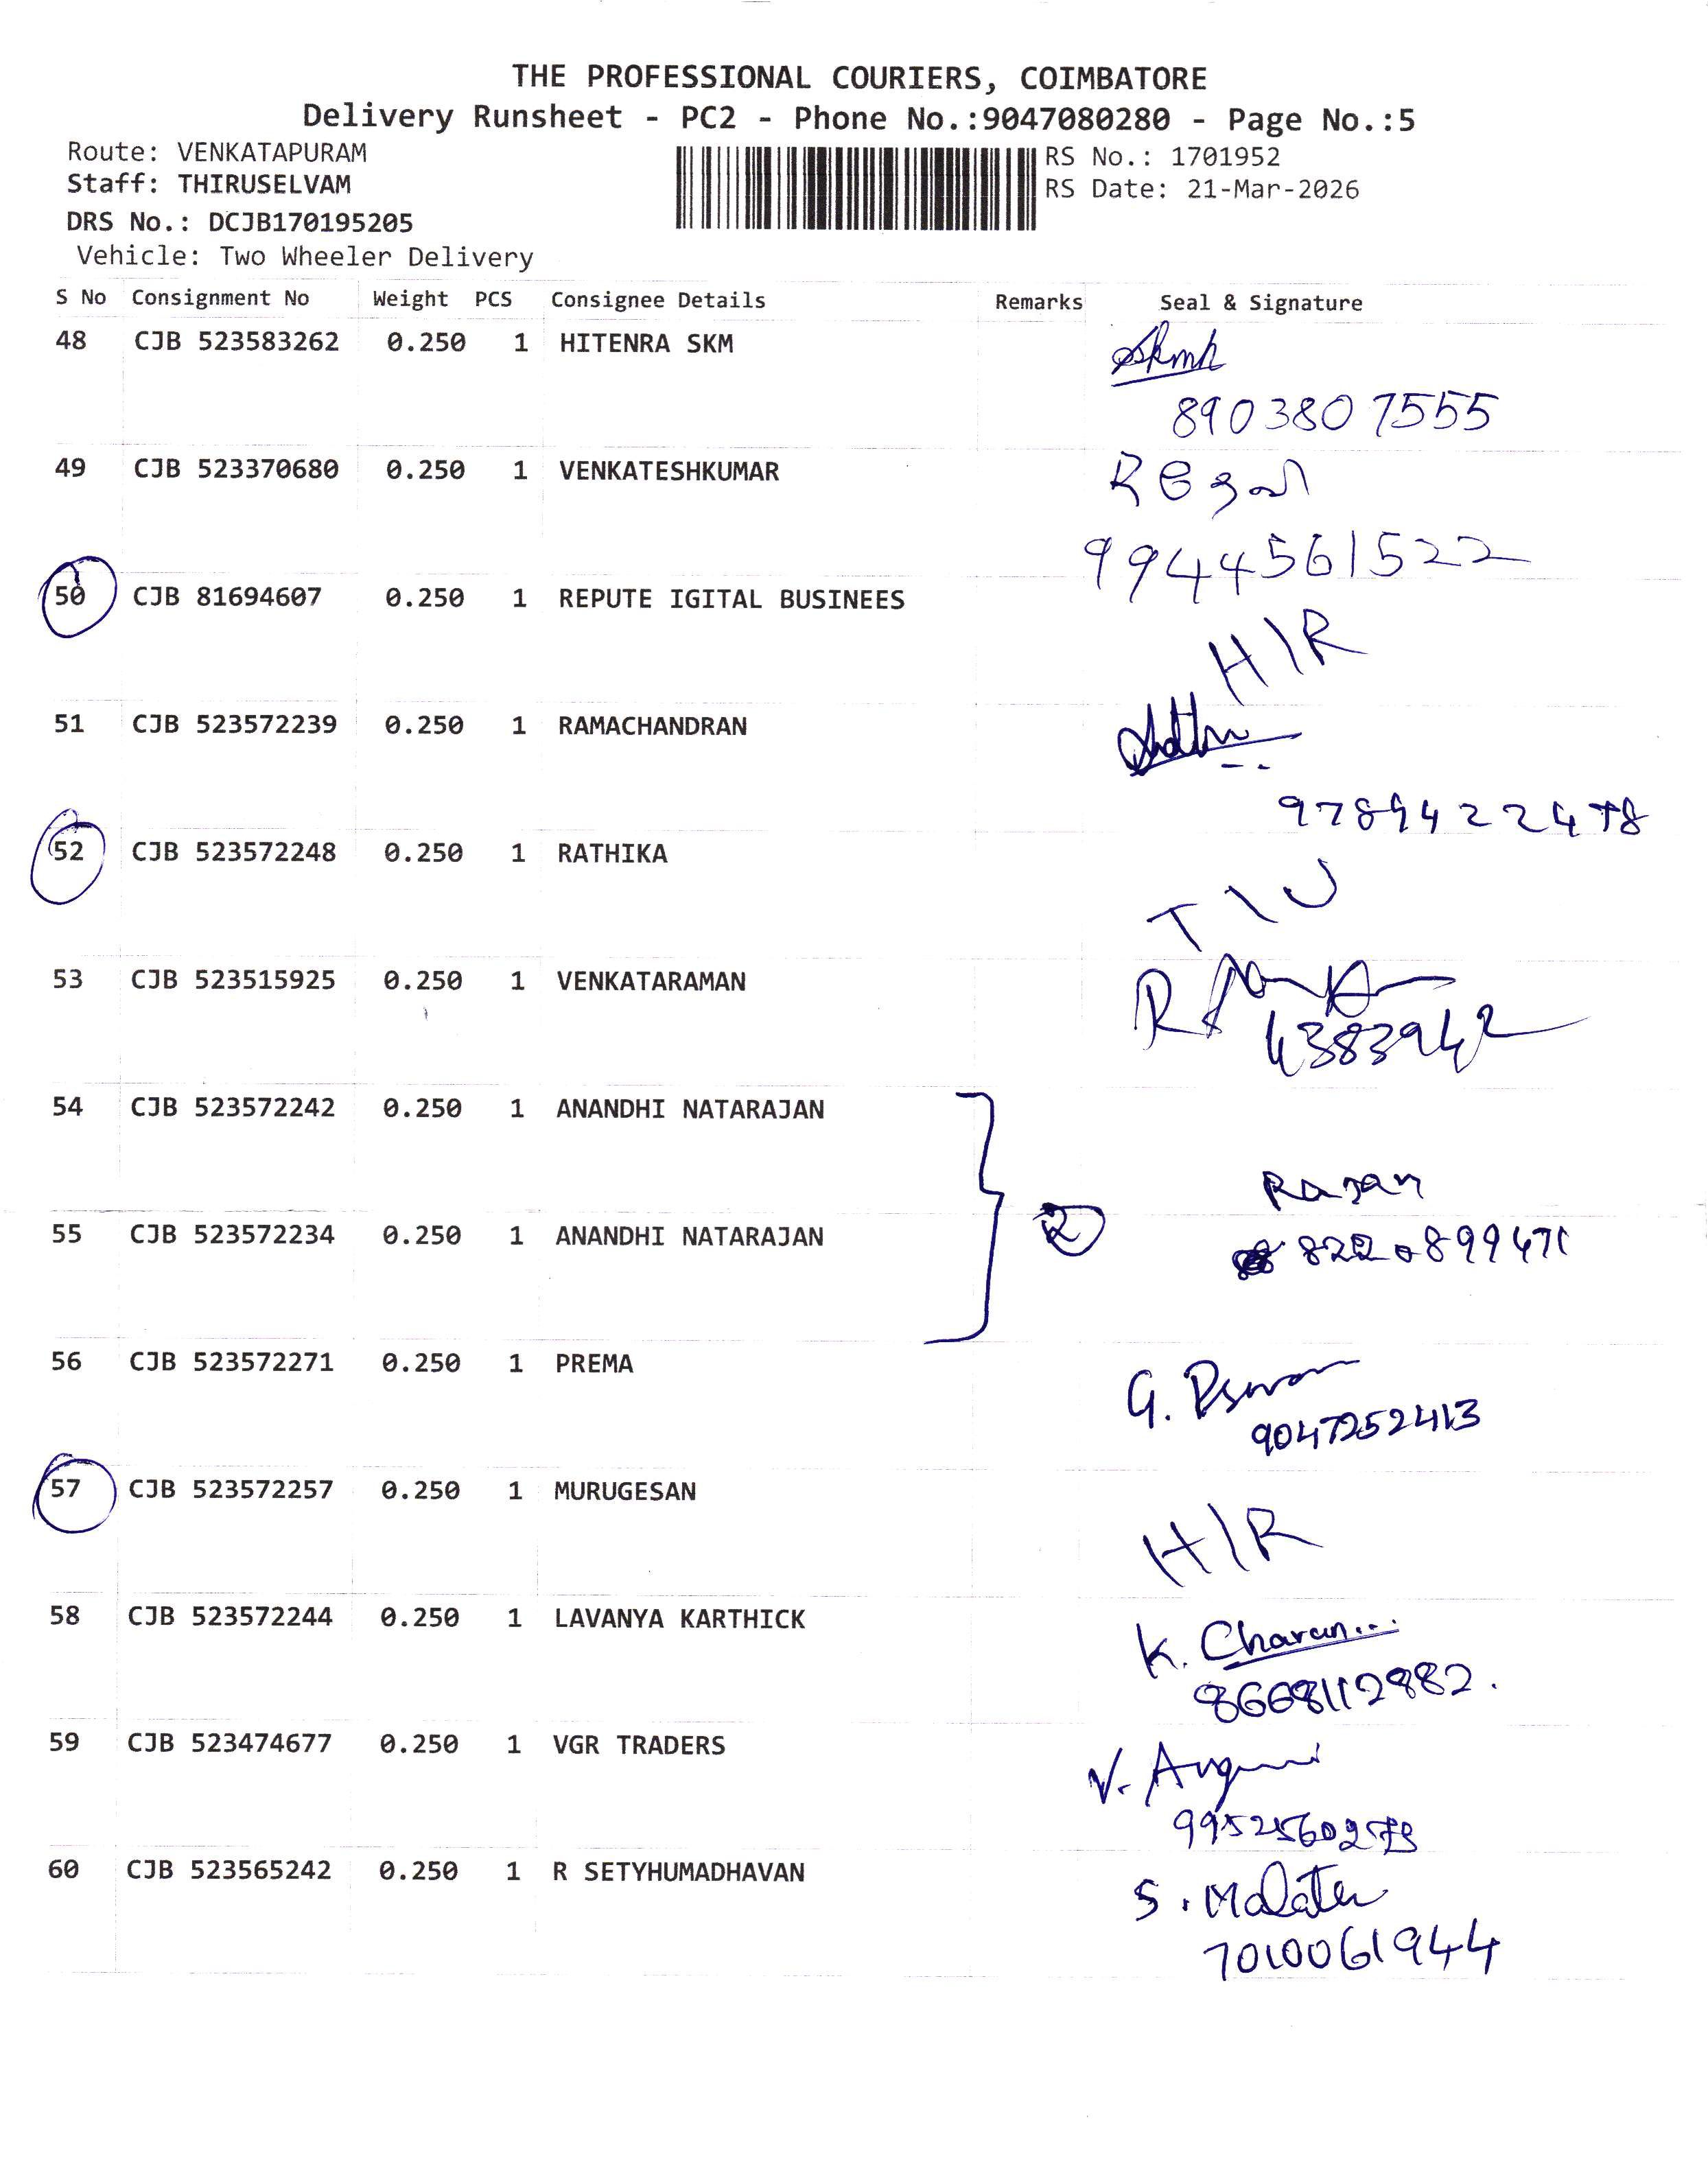 THE PROFESSIONAL COURIERS, COIMBATORE
Delivery Runsheet - PC2 - Phone No.:9047080280 - Page No.:5
Route: VENKATAPURAM
RS No.: 1701952
Staff: THIRUSELVAM
RS Date: 21-Mar-2026
DRS No.: DCJB170195205
Vehicle: Two Wheeler Delivery
S No Consignment No Weight PCS Consignee Details Remarks Seal & Signature
48 CJB 523583262 0.250 1 HITENRA SKM Skmh
8903807555
49 CJB 523370680 0.250 1 VENKATESHKUMAR
9944561522
50 CJB 81694607 0.250 1 REPUTE IGITAL BUSINEES
H\R
51 CJB 523572239 0.250 1 RAMACHANDRAN
9789422478
52 CJB 523572248 0.250 1 RATHIKA
T\U
53 CJB 523515925 0.250 1 VENKATARAMAN
54 CJB 523572242 0.250 1 ANANDHI NATARAJAN
Rajan
55 CJB 523572234 0.250 1 ANANDHI NATARAJAN 2
56 CJB 523572271 0.250 1 PREMA G.
9047252413
57 CJB 523572257 0.250 1 MURUGESAN
H\R
58 CJB 523572244 0.250 1 LAVANYA KARTHICK K. Charan...
8668112982.
59 CJB 523474677 0.250 1 VGR TRADERS V.
60 CJB 523565242 0.250 1 R SETYHUMADHAVAN S.
7010061944